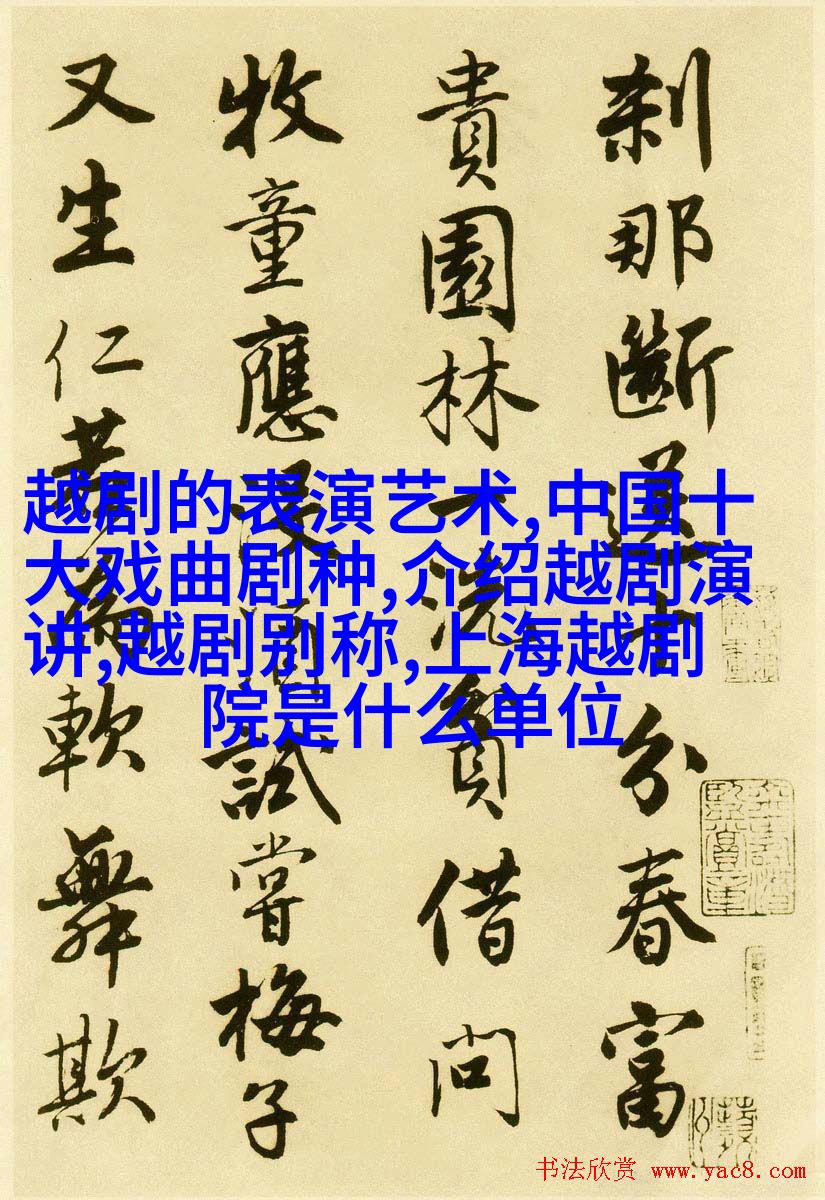 刹那斷送十分春富
貴園林一洗貧借問
牧童應没酒試嘗梅子
又生仁若論軟舞欺
越剧的表演艺术,中国十
大戏曲剧种,介绍越剧演
讲,越剧别称,上海越剧
院是什么单位
书法欣赏 www.yac8.com